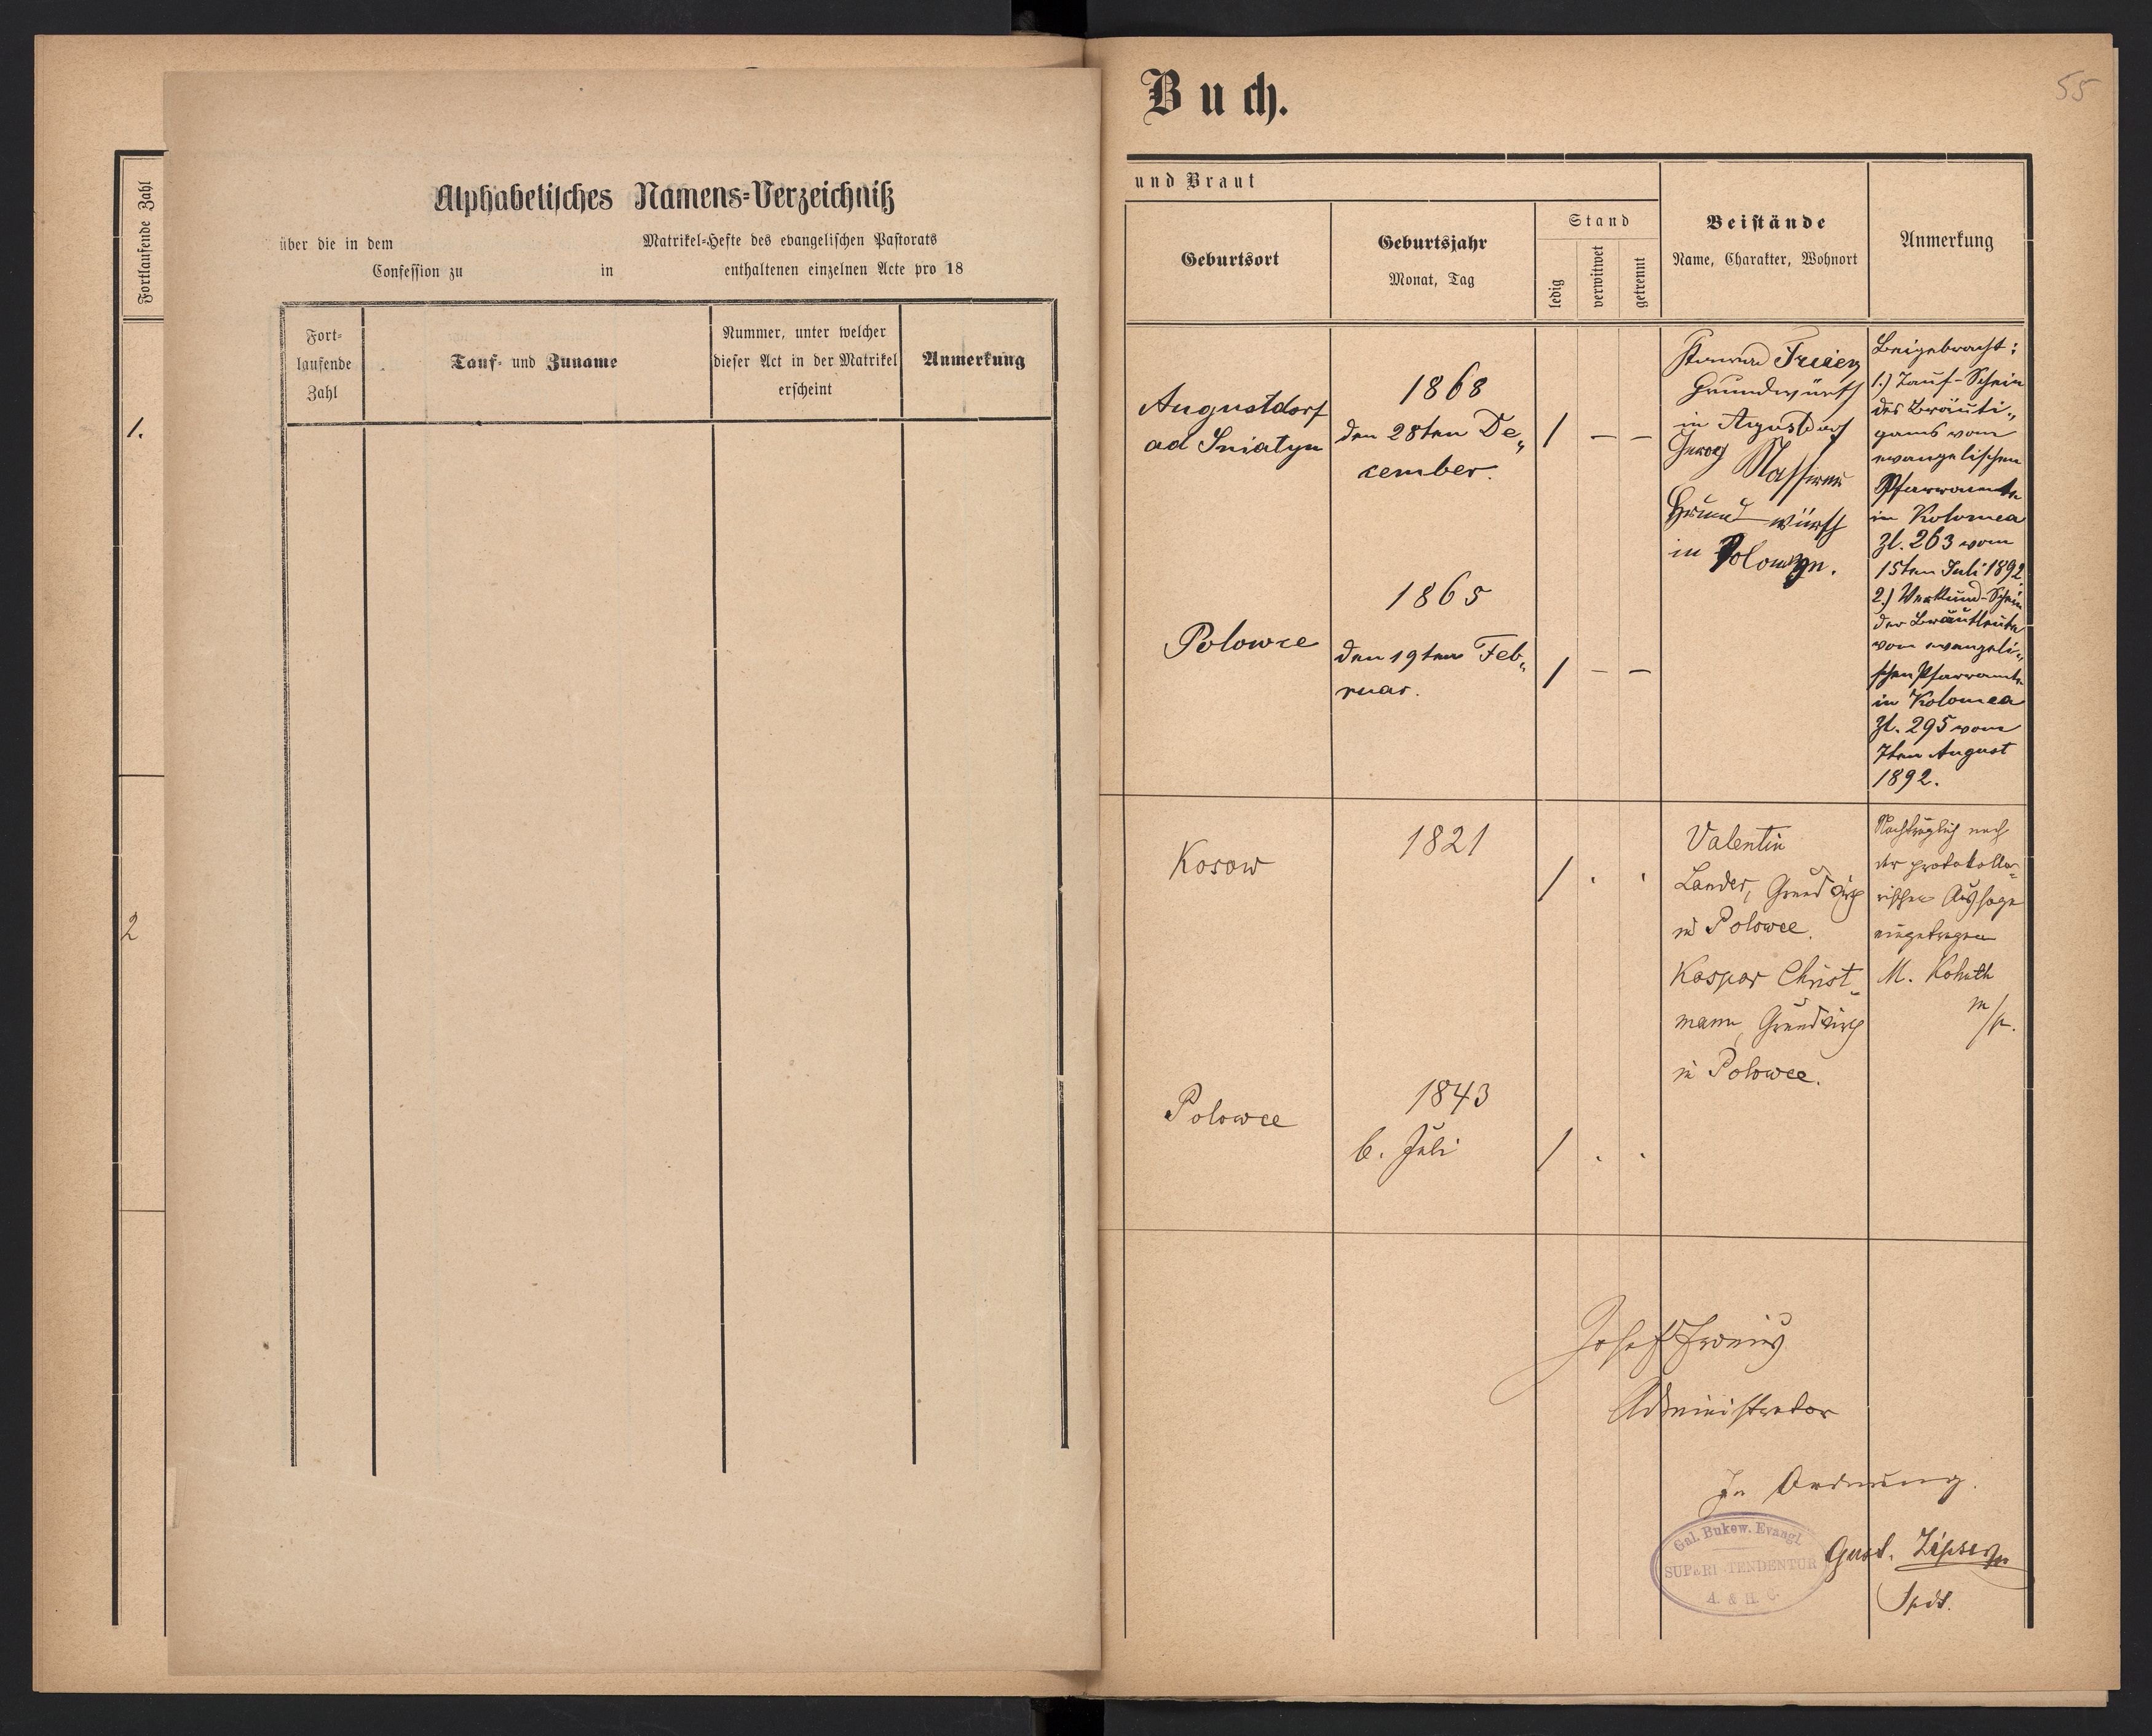 Fortlaufende Zahl
1.
2
Alphabetisches Namens-Verzeichniß
über die in dem Matrikel-Hefte des evangelischen Pastorats
Confession zu in enthaltenen einzelnen Acte pro 18
Fort-
laufende
Zahl
Tauf- und Zuname
Nummer, unter welcher
dieser Act in der Matrikel
erscheint
Anmerkung
Buch.
55
und Braut
Geburtsort
Geburtsjahr
Monat, Tag
Stand
ledig
verwitwet
getrennt
Beistände
Name, Charakter, Wohnort
Anmerkung
Augustdorf
ad Sniatyn
1868
den 28ten De„
cember.
/ — —
Grundwürth
in
Georg
Grundwürth
in
Beigebracht:
1.) Tauf-Schein
des Bräuti„
gams vom
evangelischen
Pfarramte
in Kolomea
Zl. 263 vom
15ten Juli 1892
2.) Verkünd-Schein
der Brautleute
vom evangeli„
schen Pfarramte
in Kolomea
Zl. 295 vom
7ten August
1892.
Polowce
1865
den 19ten Feb„
ruar.
/ — —
Kosow
1821
/ . .
Valentin
Lander, Grundwirth
in Polowce.
Kaspar Christ-
mann, Grundwirth
in Polowce.
Nachträglich nach
der protokolla-
rischen Aussage
eingetragen
M. Kohuth
m/p.
Polowce
1843
6. Juli
/ . .
Josef
Administrator
In Ordnung.
Gal. Bukow. Evangl.
SUPERINTENDENTUR
A. & H. C.
Gust. Zipser
Spdt.